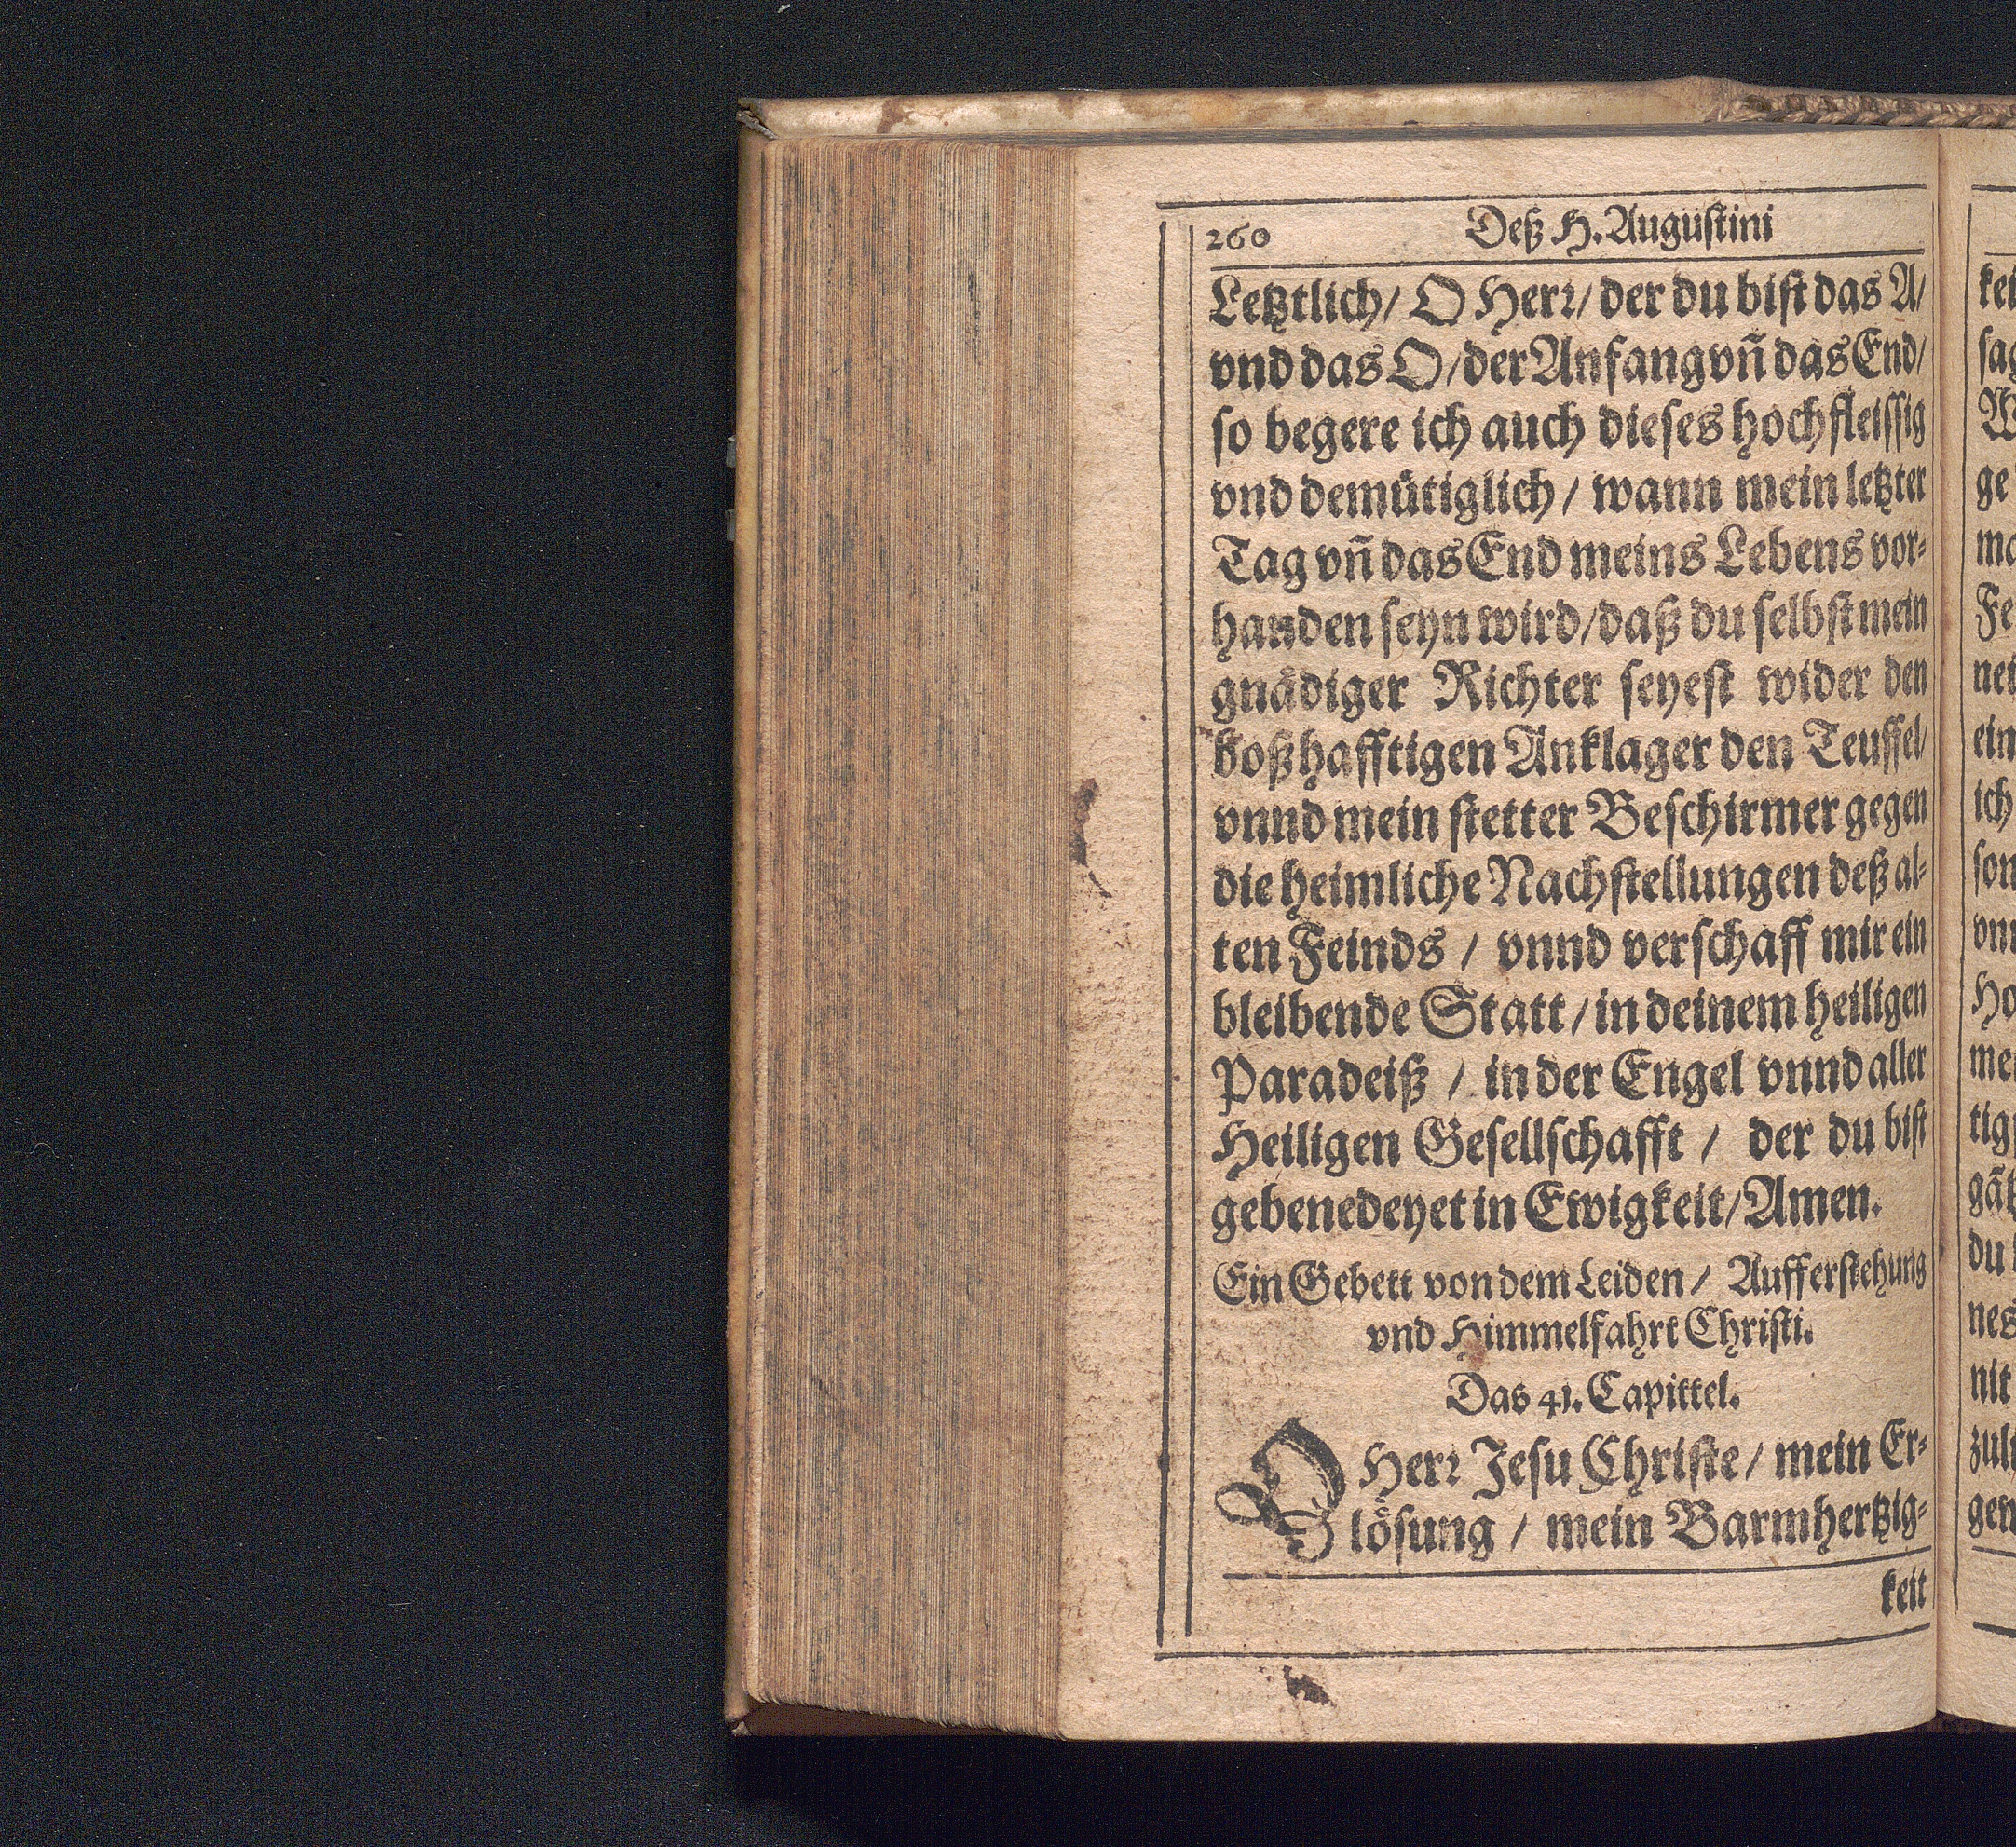 260 Deß H. Augustini
Letztlich/ O Herr/ der du bist das A/
vnd das O/ der Anfang vñ das End/
so begere ich auch dieses hochfleissig
vnd demütiglich/ wann mein letzter
Tag vñ das End meins Lebens vor-
handen seyn wird/ daß du selbst mein
gnädiger Richter seyest wider den
boßhafftigen Anklager den Teuffel/
vnnd mein stetter Beschirmer gegen
die heimliche Nachstellungen deß al-
ten Feinds / vnnd verschaff mir ein
bleibende Statt/ in deinem heiligen
Paradeiß / in der Engel vnnd aller
Heiligen Gesellschafft / der du bist
gebenedeyet in Ewigkeit/ Amen.
Ein Gebett von dem Leiden/ Aufferstehung
vnd Himmelfahrt Christi.
Das 41. Capittel.
O Herr Jesu Christe/ mein Er-
lösung / mein Barmhertzig-
keit